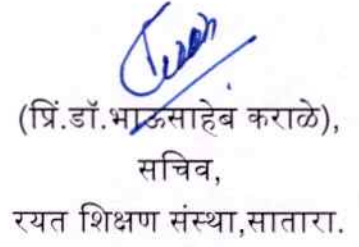 (प्रिं.डॉ.भाऊसाहेब कराळे),
सचिव,
रयत शिक्षण संस्था,सातारा.